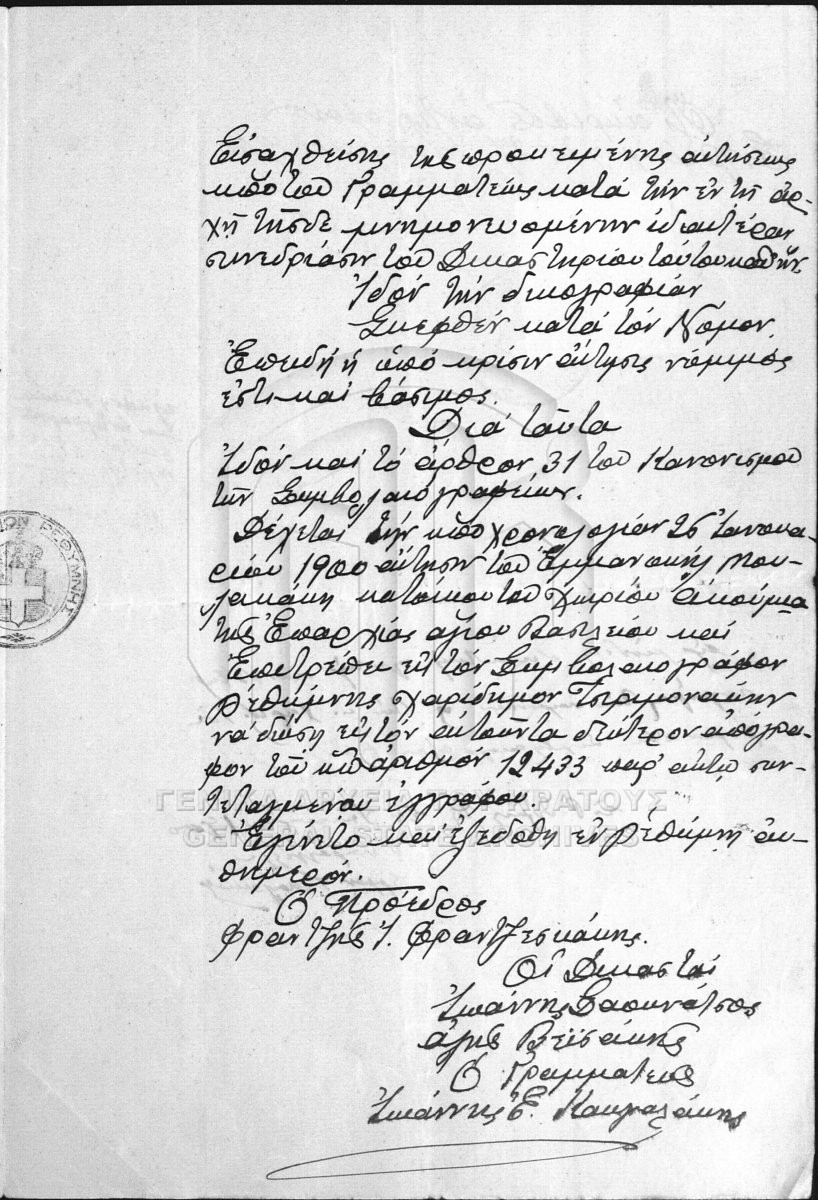 Εἰσαχθείσης τῆς προκειμένης αἰτήσεως
ὑπὸ τοῦ Γραμματέως κατὰ τὴν ἐν τῇ ἀρ-
χῇ τῆσδε μνημονευομένην ἰδιαιτέραν
συνεδρίασιν τοῦ Δικαστηρίου τούτου καθ' ἣν
Ἰδὸν τὴν δικογραφίαν
Σκεφθὲν κατὰ τὸν Νόμον
Ἐπειδὴ ἡ ὑπὸ κρίσιν αἴτησις νόμιμός
ἐστι καὶ βάσιμος.
Διὰ ταῦτα
Ἰδὸν καὶ τὸ ἄρθρον 31 τοῦ Κανονισμοῦ
τῶν Συμβολαιογραφείων.
Δέχεται τὴν ὑπὸ χρονολογίαν 26 Ἰανουα-
ρίου 1900 αἴτησιν τοῦ Ἐμμανουὴλ
κατοίκου τοῦ χωρίου Ἀκούμια
τῆς Ἐπαρχίας ἁγίου Βασιλείου καὶ
Ἐπιτρέπει εἰς τὸν Συμβολαιογράφον
Ρεθύμνης Χαρίδημον Τσιριμονάκην
νὰ δώσῃ εἰς τὸν αἰτοῦντα δεύτερον ἀπόγρα-
φον τοῦ ὑπ' ἀριθμὸν 12433 παρ' αὐτῷ συν-
τεταγμένου ἐγγράφου.
Ἐγένετο καὶ ἐξεδόθη ἐν Ρεθύμνῃ αὐ-
θημερόν.
Ὁ Πρόεδρος
Φραντζῆς Ἰ. Φραντζεσκάκης.
Οἱ Δικασταὶ
Ἰωάννης
Βεϊσάκης
Ὁ Γραμματεὺς
Ἰωάννης Ἐ.
ΓΕΝΙΚΑ ΑΡΧΕΙΑ ΤΟΥ ΚΡΑΤΟΥΣ
GENERAL STATE ARCHIVES
ΡΕΘΥΜΝΗΣ